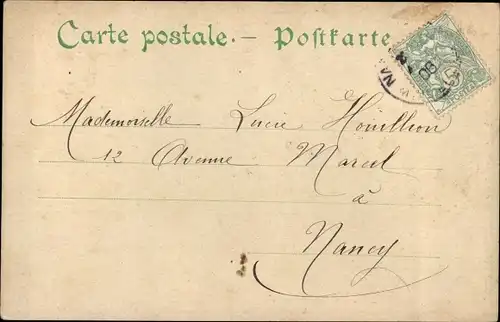 Carte postale. — Postkarte.
Mademoiselle Lucie Houillion
12 Avenue Marcel
à
Nancy